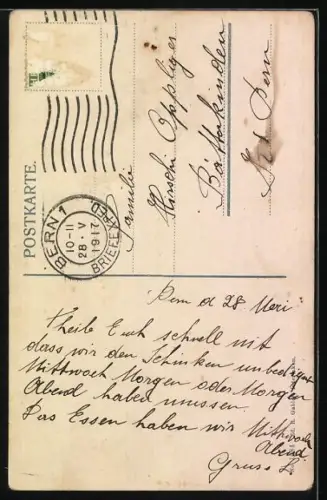 POSTKARTE.
BERN 1
10-11
28 · V
1917
BRIEFEXPED
Familie
Hirschi Oppliger
Bätterkinden
Kt Bern
Bern d 28 Mai
theile Euch schnell mit
dass wir den Schinken unbedingt
Mittwoch Morgen oder Morgen
Abend haben müssen.
Das Essen haben wir Mittwoch
Abend
Gruss